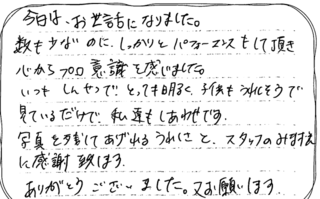 今日は、お世話になりました。
数も少ないのに、しっかりとパフォーマンスもして頂き
心からプロ意識を感じました。
いつも しんせつで とっても明るく、子供もうれしそうで
見ているだけで、私達もしあわせです。
写真を残してあげれるうれしさと、スタッフのみなさまに
に感謝 致します
ありがとう ございました。又お願いします